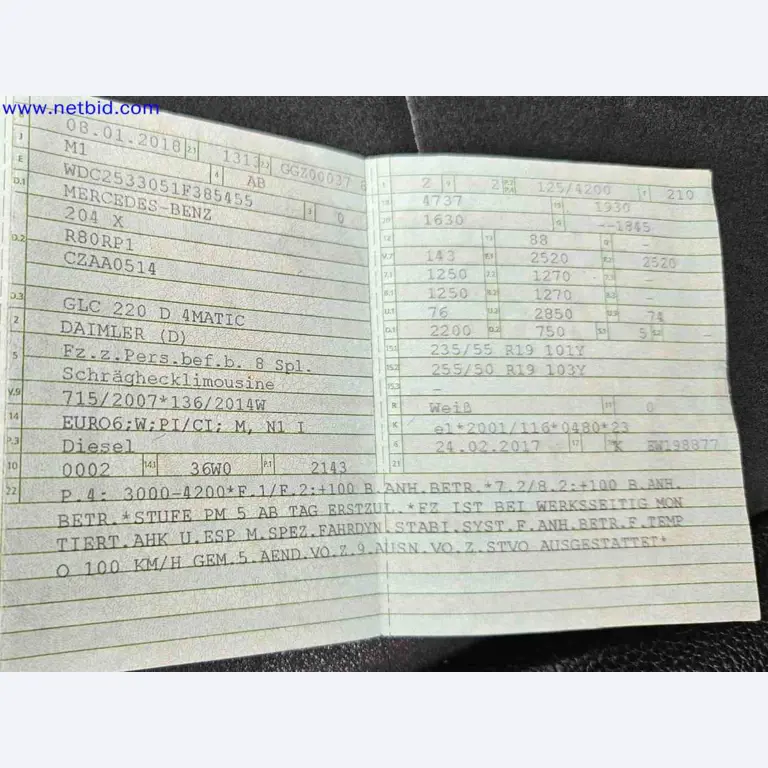 www.netbid.com
08.01.2018 2.1 1313 2.2 GGZ00037
J M1 4 AB
E WDC2533051F385455 3 0
D.1 MERCEDES-BENZ
204 X
D.2 R80RP1
CZAA0514
D.3 GLC 220 D 4MATIC
2 DAIMLER (D)
5 Fz.z.Pers.bef.b. 8 Spl.
Schräghecklimousine
V.9 715/2007*136/2014W
14 EURO6;W;PI/CI; M, N1 I
P.3 Diesel
10 0002 14.1 36W0 P.1 2143
L 2 9 2 P.2 P.4 125/4200 T 210
18 4737 19 1930
20 1630 G --1845
12 - 13 88 Q -
V.7 143 F.1 2520 F.2 2520
7.1 1250 7.2 1270 7.3 -
8.1 1250 8.2 1270 8.3 -
U.1 76 U.2 2850 U.3 74
O.1 2200 O.2 750 S.1 5 S.2 -
15.1 235/55 R19 101Y
15.2 255/50 R19 103Y
15.3 -
R Weiß 11 0
K e1*2001/116*0480*23
6 24.02.2017 17 K 16 EW198877
21
22 P.4: 3000-4200*F.1/F.2:+100 B.ANH.BETR.*7.2/8.2:+100 B.ANH.
BETR.*STUFE PM 5 AB TAG ERSTZUL.*FZ IST BEI WERKSSEITIG MON
TIERT.AHK U.ESP M.SPEZ.FAHRDYN.STABI.SYST.F.ANH.BETR.F.TEMP
O 100 KM/H GEM.5.AEND.VO.Z.9.AUSN.VO.Z.STVO AUSGESTATTET*